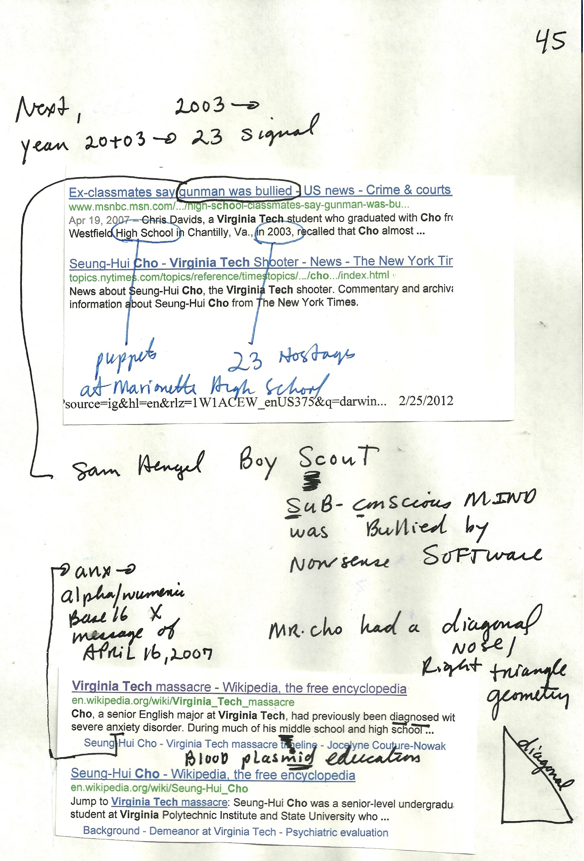 45
Next, 2003 →
year 20+03 → 23 signal
Ex-classmates say gunman was bullied - US news - Crime & courts
www.msnbc.msn.com/.../high-school-classmates-say-gunman-was-bu...
Apr 19, 2007 – Chris Davids, a Virginia Tech student who graduated with Cho fr
Westfield High School in Chantilly, Va., in 2003, recalled that Cho almost ...
Seung-Hui Cho - Virginia Tech Shooter - News - The New York Tir
topics.nytimes.com/topics/reference/timestopics/.../cho.../index.html
News about Seung-Hui Cho, the Virginia Tech shooter. Commentary and archiva
information about Seung-Hui Cho from The New York Times.
puppets 23 Hostages
at Marionette High School
'source=ig&hl=en&rlz=1W1ACEW_enUS375&q=darwin... 2/25/2012
Sam Hengel Boy Scout
SUB-conscious MIND
was Bullied by
Nonsense SOFTware
→ anx →
alpha/numeric
Base 16 X
message of
APRIL 16, 2007
MR. cho had a diagonal
NOSE/
Right triangle
geometry
Virginia Tech massacre - Wikipedia, the free encyclopedia
en.wikipedia.org/wiki/Virginia_Tech_massacre
Cho, a senior English major at Virginia Tech, had previously been diagnosed wit
severe anxiety disorder. During much of his middle school and high school ...
Seung-Hui Cho - Virginia Tech massacre timeline - Jocelyne Couture-Nowak
Blood plasmid education
Seung-Hui Cho - Wikipedia, the free encyclopedia
en.wikipedia.org/wiki/Seung-Hui_Cho
Jump to Virginia Tech massacre: Seung-Hui Cho was a senior-level undergradu
student at Virginia Polytechnic Institute and State University who ...
Background - Demeanor at Virginia Tech - Psychiatric evaluation
diagonal